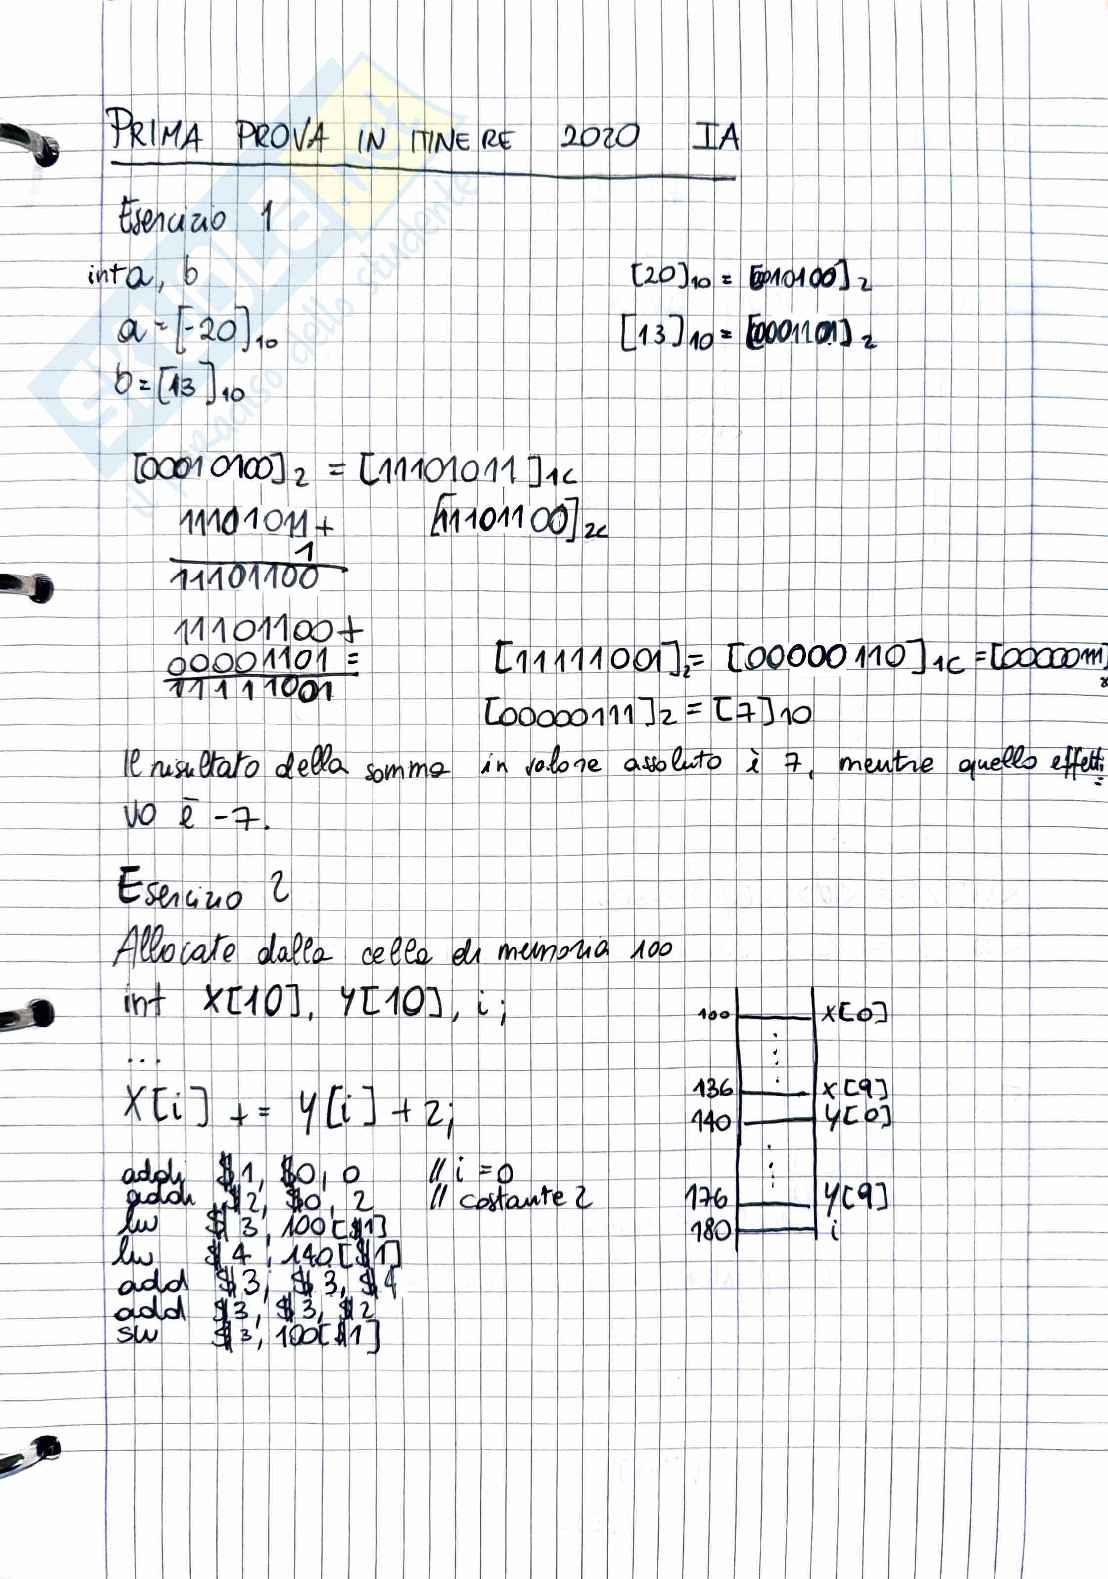 PRIMA PROVA IN ITINERE 2020 IA
Esercizio 1
int a, b
a = [-20]10
b = [13]10
[20]10 = [0010100]2
[13]10 = [0001101]2
[00010100]2 = [11101011]1C
11101011+
1
11101100
[11101100]2C
11101100+
00001101=
11111001
[11111001]2= [00000110]1C =[00000111]2
[00000111]2 = [7]10
Il risultato della somma in valore assoluto è 7, mentre quello effetti=
vo è -7.
Esercizio 2
Allocate dalla cella di memoria 100
int X[10], Y[10], i;
...
X[i] += Y[i] + 2;
addi $1, $0, 0 // i = 0
addi $2, $0, 2 // costante 2
lw $3, 100[$1]
lw $4, 140[$1]
add $3, $3, $4
add $3, $3, $2
sw $3, 100[$1]
100 X[0]
136 X[9]
140 Y[0]
176 Y[9]
180 i
SKUOLA.net
il paradiso dello studente